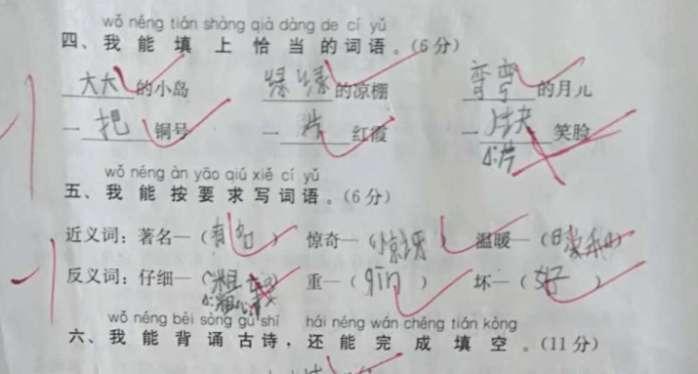 wǒ néng tián shàng qià dàng de cí yǔ
四、我能填上恰当的词语。(6分)
大大的小岛 绿绿的凉棚 弯弯的月儿
一把铜号 一片红霞 一块笑脸
片
wǒ néng àn yāo qiú xiě cí yǔ
五、我能按要求写词语。(6分)
近义词：著名—(有名) 惊奇—(惊讶) 温暖—(暖和)
反义词：仔细—(粗 ) 重—(qīn) 坏—(好)
粗心
wǒ néng bèi sòng gǔ shī hái néng wán chéng tián kòng
六、我能背诵古诗，还能完成填空。(11分)